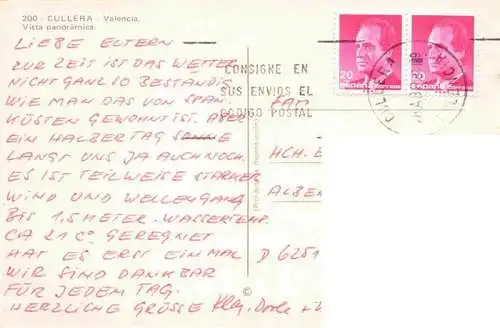 200 - CULLERA - Valencia.
Vista panorámica.
LIEBE ELTERN
ZUR ZEIT IST DAS WETTER
NICHT GANZ SO BESTÄNDIG
WIE MAN DAS VON SPAN.
KÜSTEN GEWOHNT IST. ABER
EIN HALBER TAG SONNE
LANGT UNS JA AUCH NOCH.
ES IST TEILWEISE STARKER
WIND UND WELLENGANG
BIS 1,5 METER. WASSERTEMP.
CA 21 C° GEREGNET
HAT ES ERST EINMAL
WIR SIND DANKBAR
FÜR JEDEM TAG.
HERZLICHE GRÜSSE
CONSIGNE EN
SUS ENVIOS EL
CODIGO POSTAL
20
20
CULLERA
FAM
HCH.
ALBER
D 6251
©